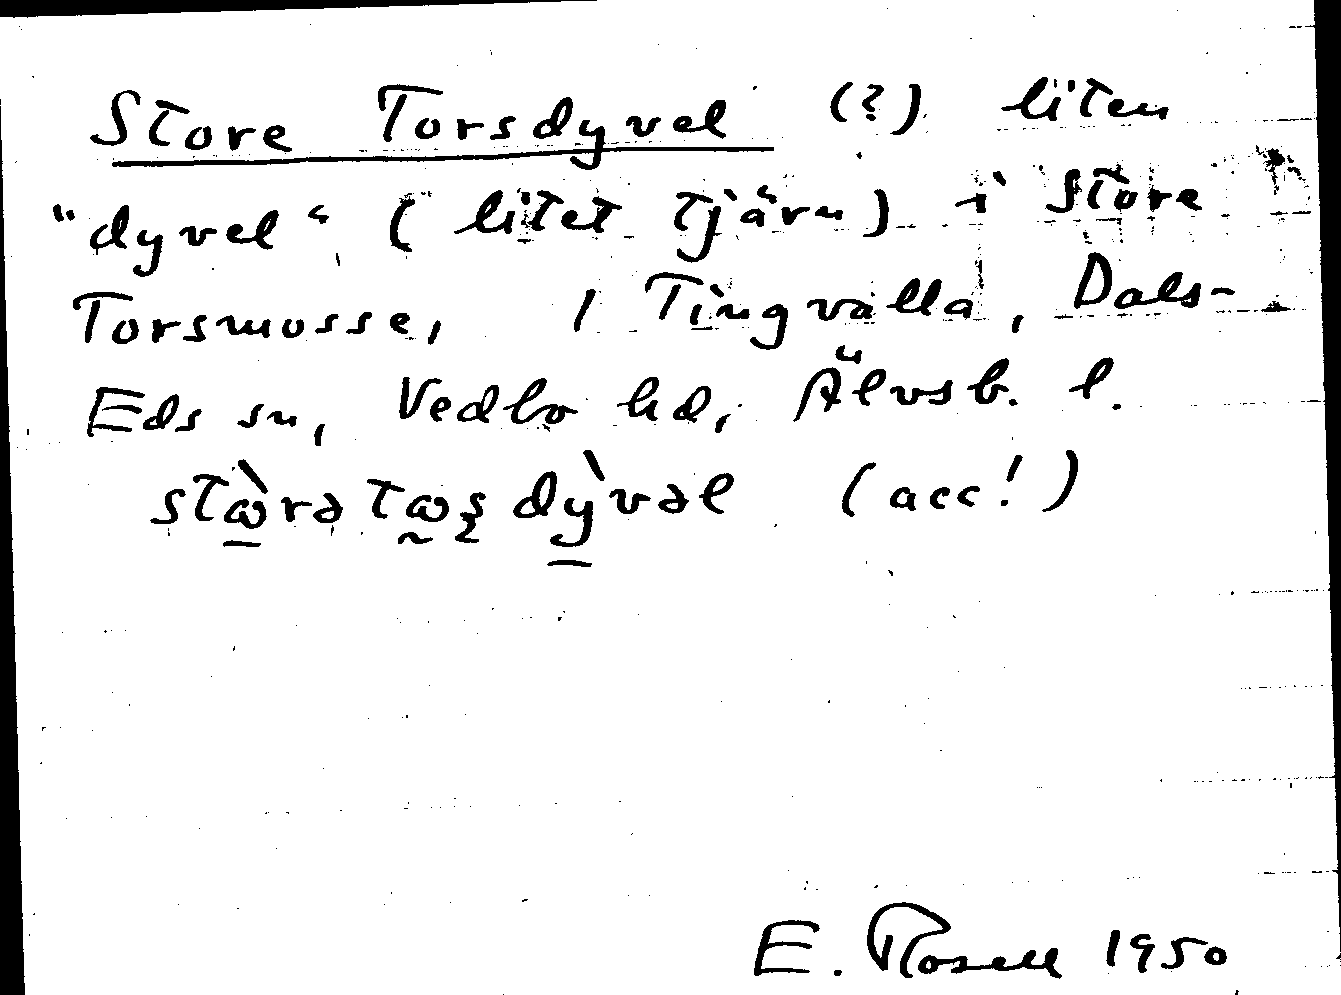 Store Torsdyvel (?) liten
"dyvel" (litet tjärn) i Store
Torsmosse, / Tingvalla, Dals-
Eds sn, Vedbo hd, Älvsb. l.
stɷ̀rə tɷʂ dỳvəl (acc!)
E. Rosell 1950